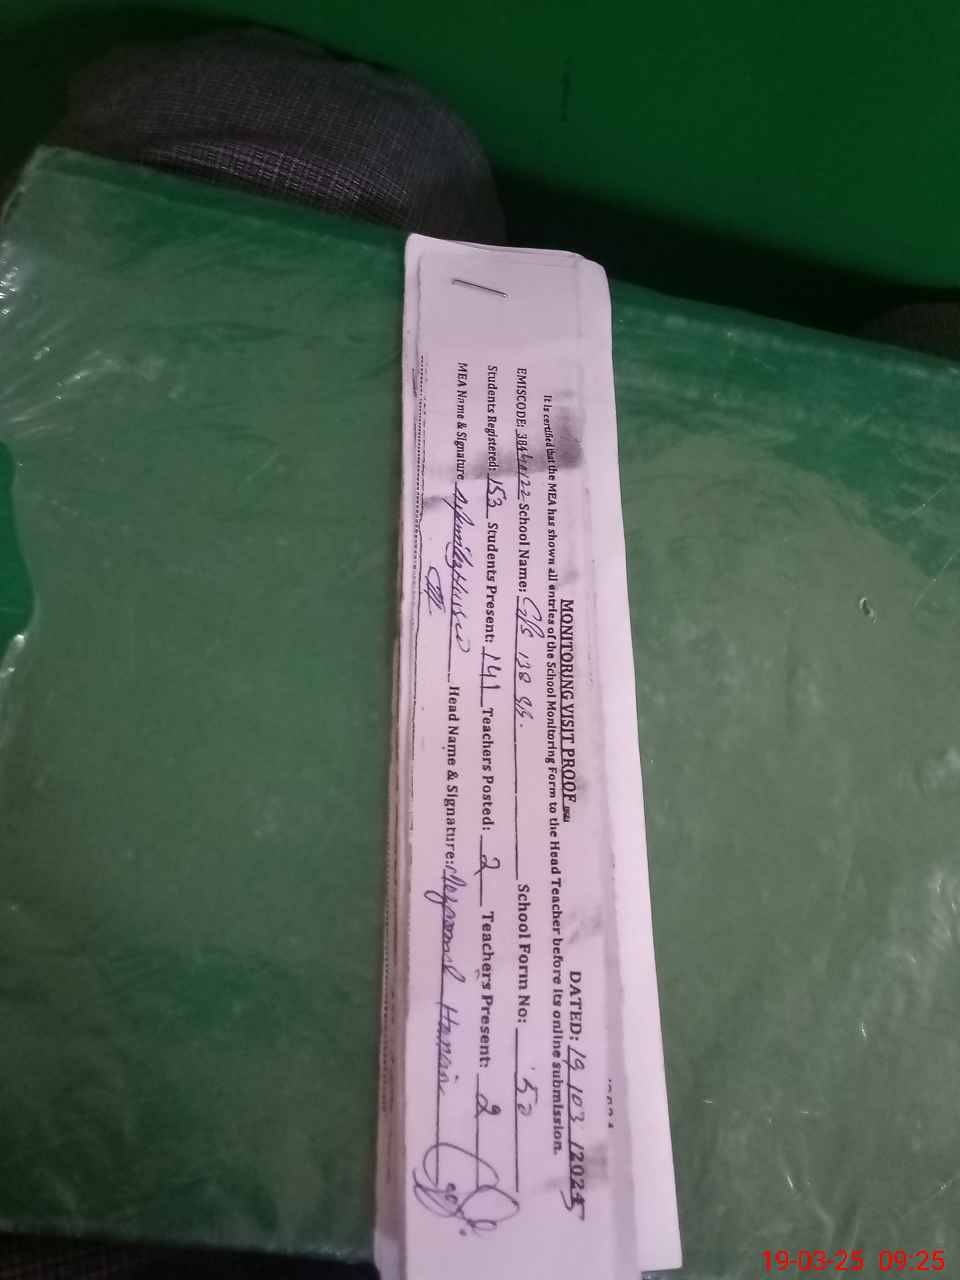 MONITORING VISIT PROOF
DATED: 19/03/2025
It is certified that the MEA has shown all entries of the School Monitoring Form to the Head Teacher before its online submission.
EMISCODE: School Name: 138 School Form No: 50
Students Registered: 153 Students Present: 141 Teachers Posted: 2 Teachers Present: 2
MEA Name & Signature Head Name & Signature:
19-03-25 09:25